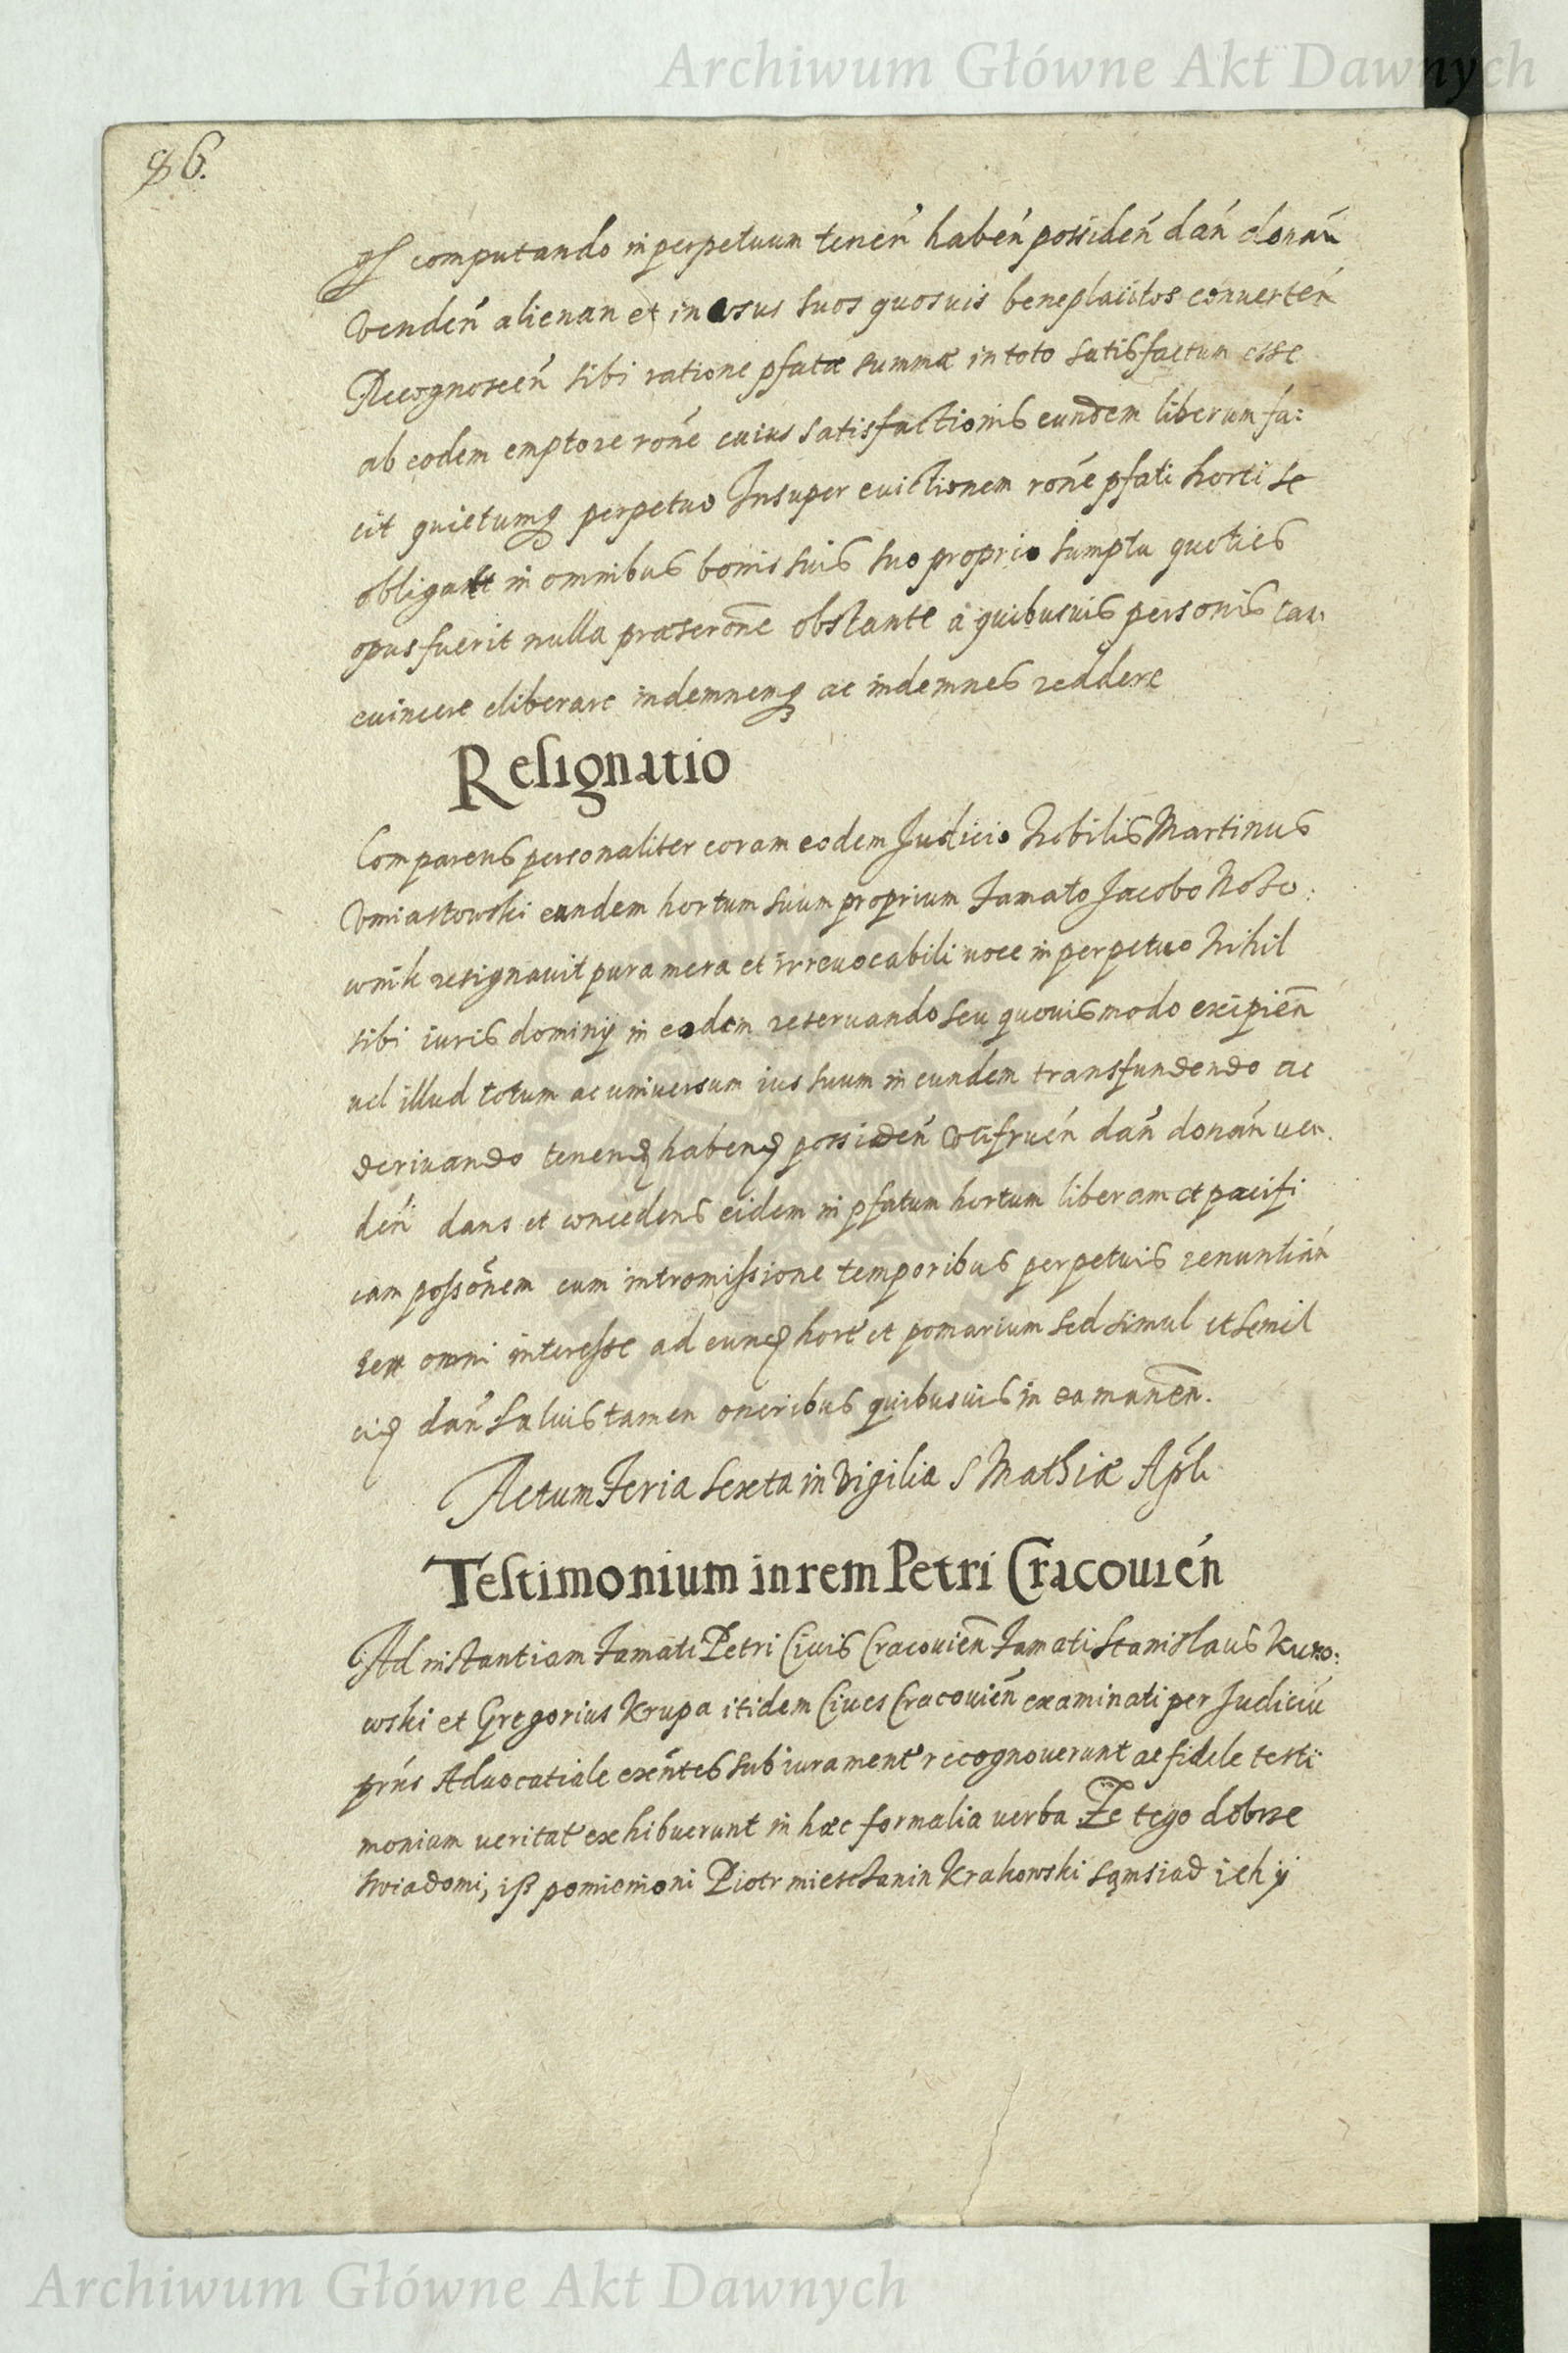 Archiwum Główne Akt Dawnych
86.
computando in perpetuum tenen̄ haben̄ possiden̄ dan̄ donan̄
Venden̄ alienan et in vsus suos quosuis beneplacitos conuerten̄
Recognoscen̄ sibi ratione pfatæ summæ in toto satisfactum esse
ab eodem emptore rōne cuius satisfactionis eundem liberum fa:
cit quietumq perpetuo Insuper euictionem rōne pfati horti se
obligat in omnibus bonis suis suo proprio sumptu quoties
opus fuerit nulla præscrōne obstante à quibusuis personis
euincere eliberare indemnemq ac indemnes reddere
Resignatio
Comparens personaliter coram eodem Judicio Nobilis Martinus
Vmiastowski eundem hortum suum proprium Famato Jacobo Noso:
wnik resignauit pura mera et irreuocabili uoce in perpetuo Nihil
sibi iuris dominij in eodem reseruando seu quouismodo excipien̄
uel illud totum ac uniuersum ius suum in eundem transfundendo ac
deriuando tenend habend possiden̄ vtifruen̄ dan̄ donan̄ uen
den̄ dans et concedens eidem in pfatum hortum liberam et pacifi
cam possōnem cum intromissione temporibus perpetuis renuntian̄
omni interesse ad eund hort et pomarium sed simul et semel
eid dan̄ saluis tamen oneribus quibusuis in ea manen̄.
Actum Feria Sexta in Vigilia S Mathiæ Apli
Testimonium in rem Petri Cracouien̄
Ad instantiam Famati Petri Ciuis Cracouien̄ Famati Stanislaus Kuro:
wski et Gregorius Krupa itidem Ciues Cracouien̄ examinati per Judiciū
prn̄s Aduocatiale exn̄tes sub iurament recognouerunt ac fidele testi
monium ueritat exhibuerunt in hæc formalia uerba Że tego dobrze
swiadomi, iß pomienioni Piotr miesczanin Krakowski sąmsiad ich ÿ
Archiwum Główne Akt Dawnych